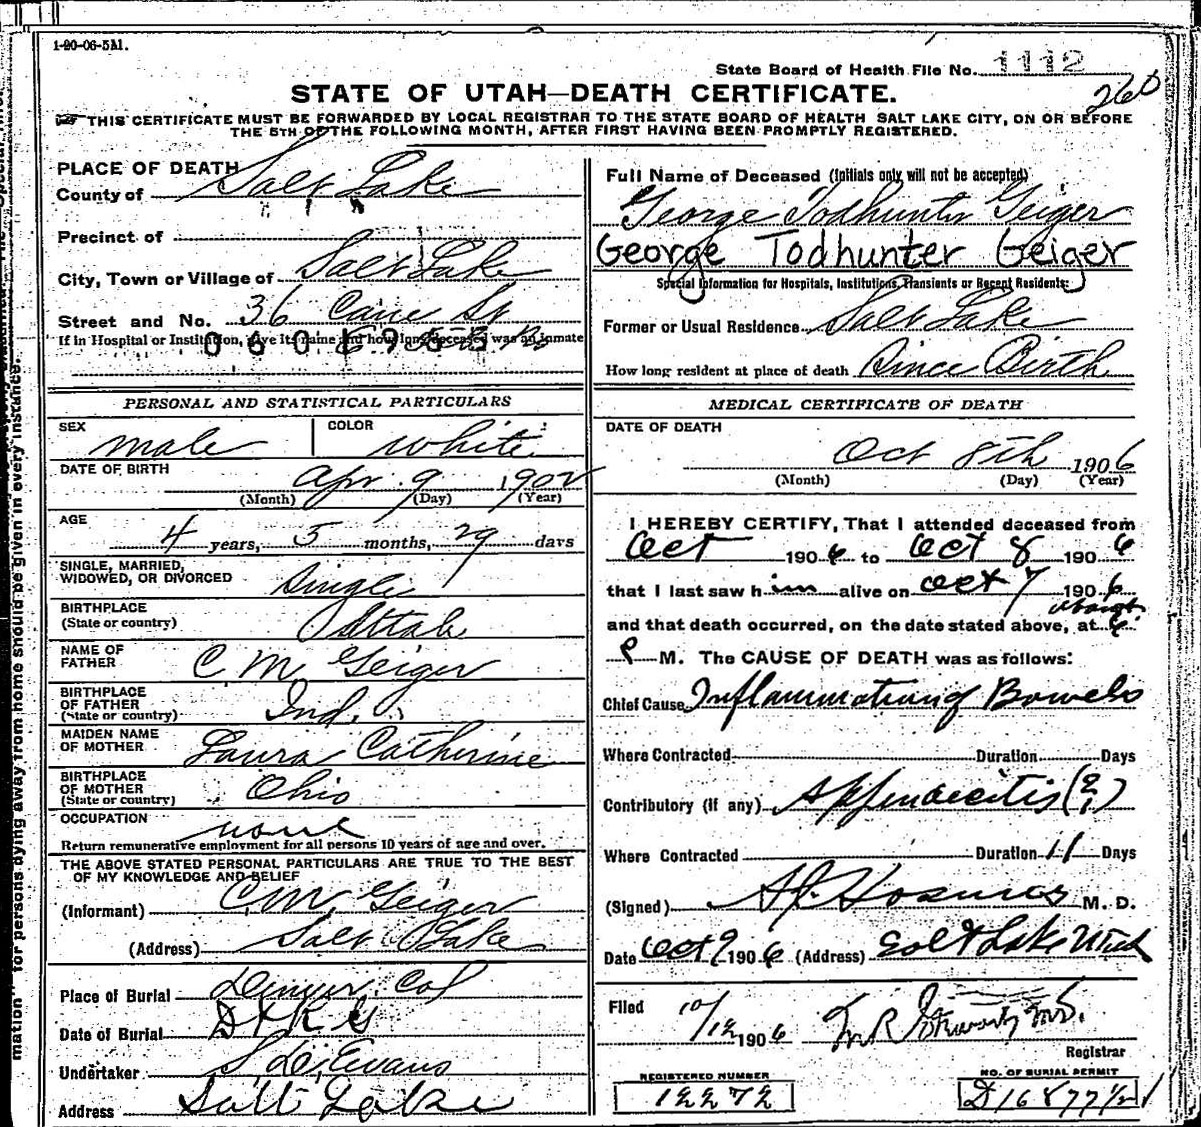 1-20-06-5M.
State Board of Health File No. 1112
STATE OF UTAH—DEATH CERTIFICATE.
260
THIS CERTIFICATE MUST BE FORWARDED BY LOCAL REGISTRAR TO THE STATE BOARD OF HEALTH SALT LAKE CITY, ON OR BEFORE
THE 5TH OF THE FOLLOWING MONTH, AFTER FIRST HAVING BEEN PROMPTLY REGISTERED.
mation for persons dying away from home should be given in every instance.
PLACE OF DEATH
County of Salt Lake
Precinct of
City, Town or Village of Salt Lake
Street and No. 36 St
If in Hospital or Institution, give its name and how long deceased was an inmate
PERSONAL AND STATISTICAL PARTICULARS
SEX male COLOR white
DATE OF BIRTH Apr. 9 1902
(Month) (Day) (Year)
AGE 4 years, 5 months, 29 days
SINGLE, MARRIED, WIDOWED, OR DIVORCED Single
BIRTHPLACE
(State or country) Utah
NAME OF FATHER C M Geiger
BIRTHPLACE OF FATHER
(State or country) Ind.
MAIDEN NAME OF MOTHER Laura Catherine
BIRTHPLACE OF MOTHER
(State or country) Ohio
OCCUPATION none
Return remunerative employment for all persons 10 years of age and over.
THE ABOVE STATED PERSONAL PARTICULARS ARE TRUE TO THE BEST
OF MY KNOWLEDGE AND BELIEF
(Informant) C. M. Geiger
(Address) Salt Lake
Place of Burial Denver Col
Date of Burial
Undertaker S D Evans
Address Salt Lake
Full Name of Deceased (Initials only will not be accepted)
George Todhunter Geiger
George Todhunter Geiger
Special Information for Hospitals, Institutions, Transients or Recent Residents:
Former or Usual Residence Salt Lake
How long resident at place of death Since Birth
MEDICAL CERTIFICATE OF DEATH
DATE OF DEATH
Oct 8th 1906
(Month) (Day) (Year)
I HEREBY CERTIFY, That I attended deceased from
Oct 1906 to Oct 8 1906
that I last saw him alive on Oct 7 1906
and that death occurred, on the date stated above, at about 6
P M. The CAUSE OF DEATH was as follows:
Chief Cause Inflammation of Bowels
Where Contracted Duration Days
Contributory (if any) Appendicitis (?)
Where Contracted Duration 11 Days
(Signed) M. D.
Date Oct 9 1906 (Address) Salt Lake Utah
Filed 10/12 1906
Registrar
REGISTERED NUMBER
12272
NO. OF BURIAL PERMIT
D16877½